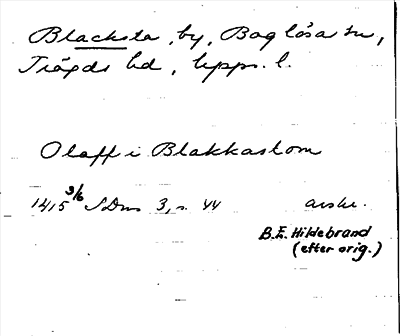 Blacksta, by, Boglösa sn,
Trögds hd, Upps. l.
Olaff i Blakkastom
1415 3/6 SDns 3, s. 44 avskr.
B.E. Hildebrand
(efter orig.)